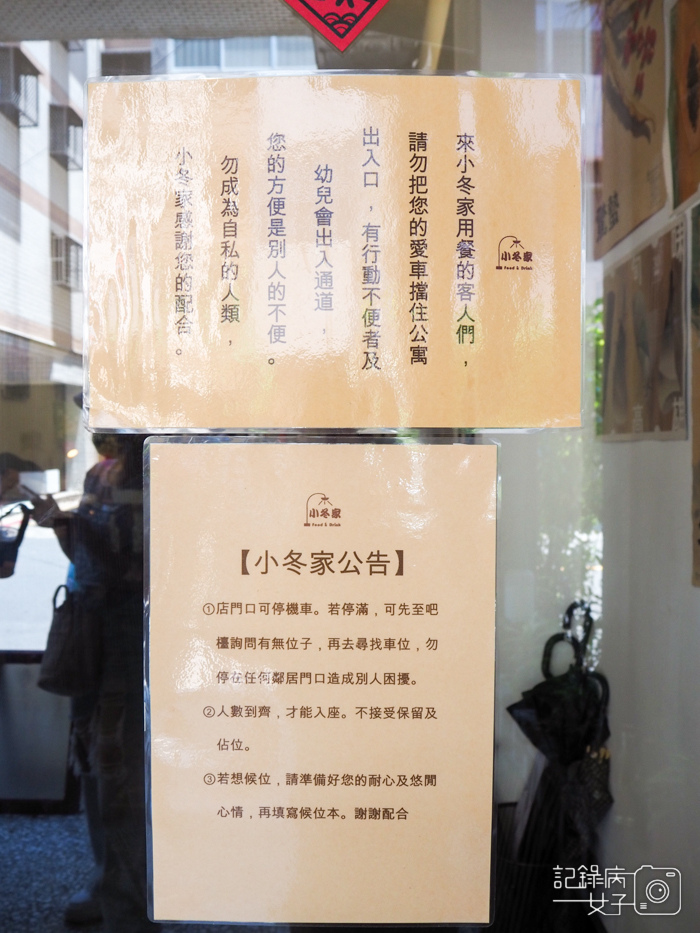 小冬家
Food & Drink
來小冬家用餐的客人們，
請勿把您的愛車擋住公寓
出入口，有行動不便者及
幼兒會出入通道，
您的方便是別人的不便。
勿成為自私的人類，
小冬家感謝您的配合。
小冬家
Food & Drink
【小冬家公告】
①店門口可停機車。若停滿，可先至吧
檯詢問有無位子，再去尋找車位，勿
停在任何鄰居門口造成別人困擾。
②人數到齊，才能入座。不接受保留及
佔位。
③若想候位，請準備好您的耐心及悠閒
心情，再填寫候位本。謝謝配合
記錄病
女子